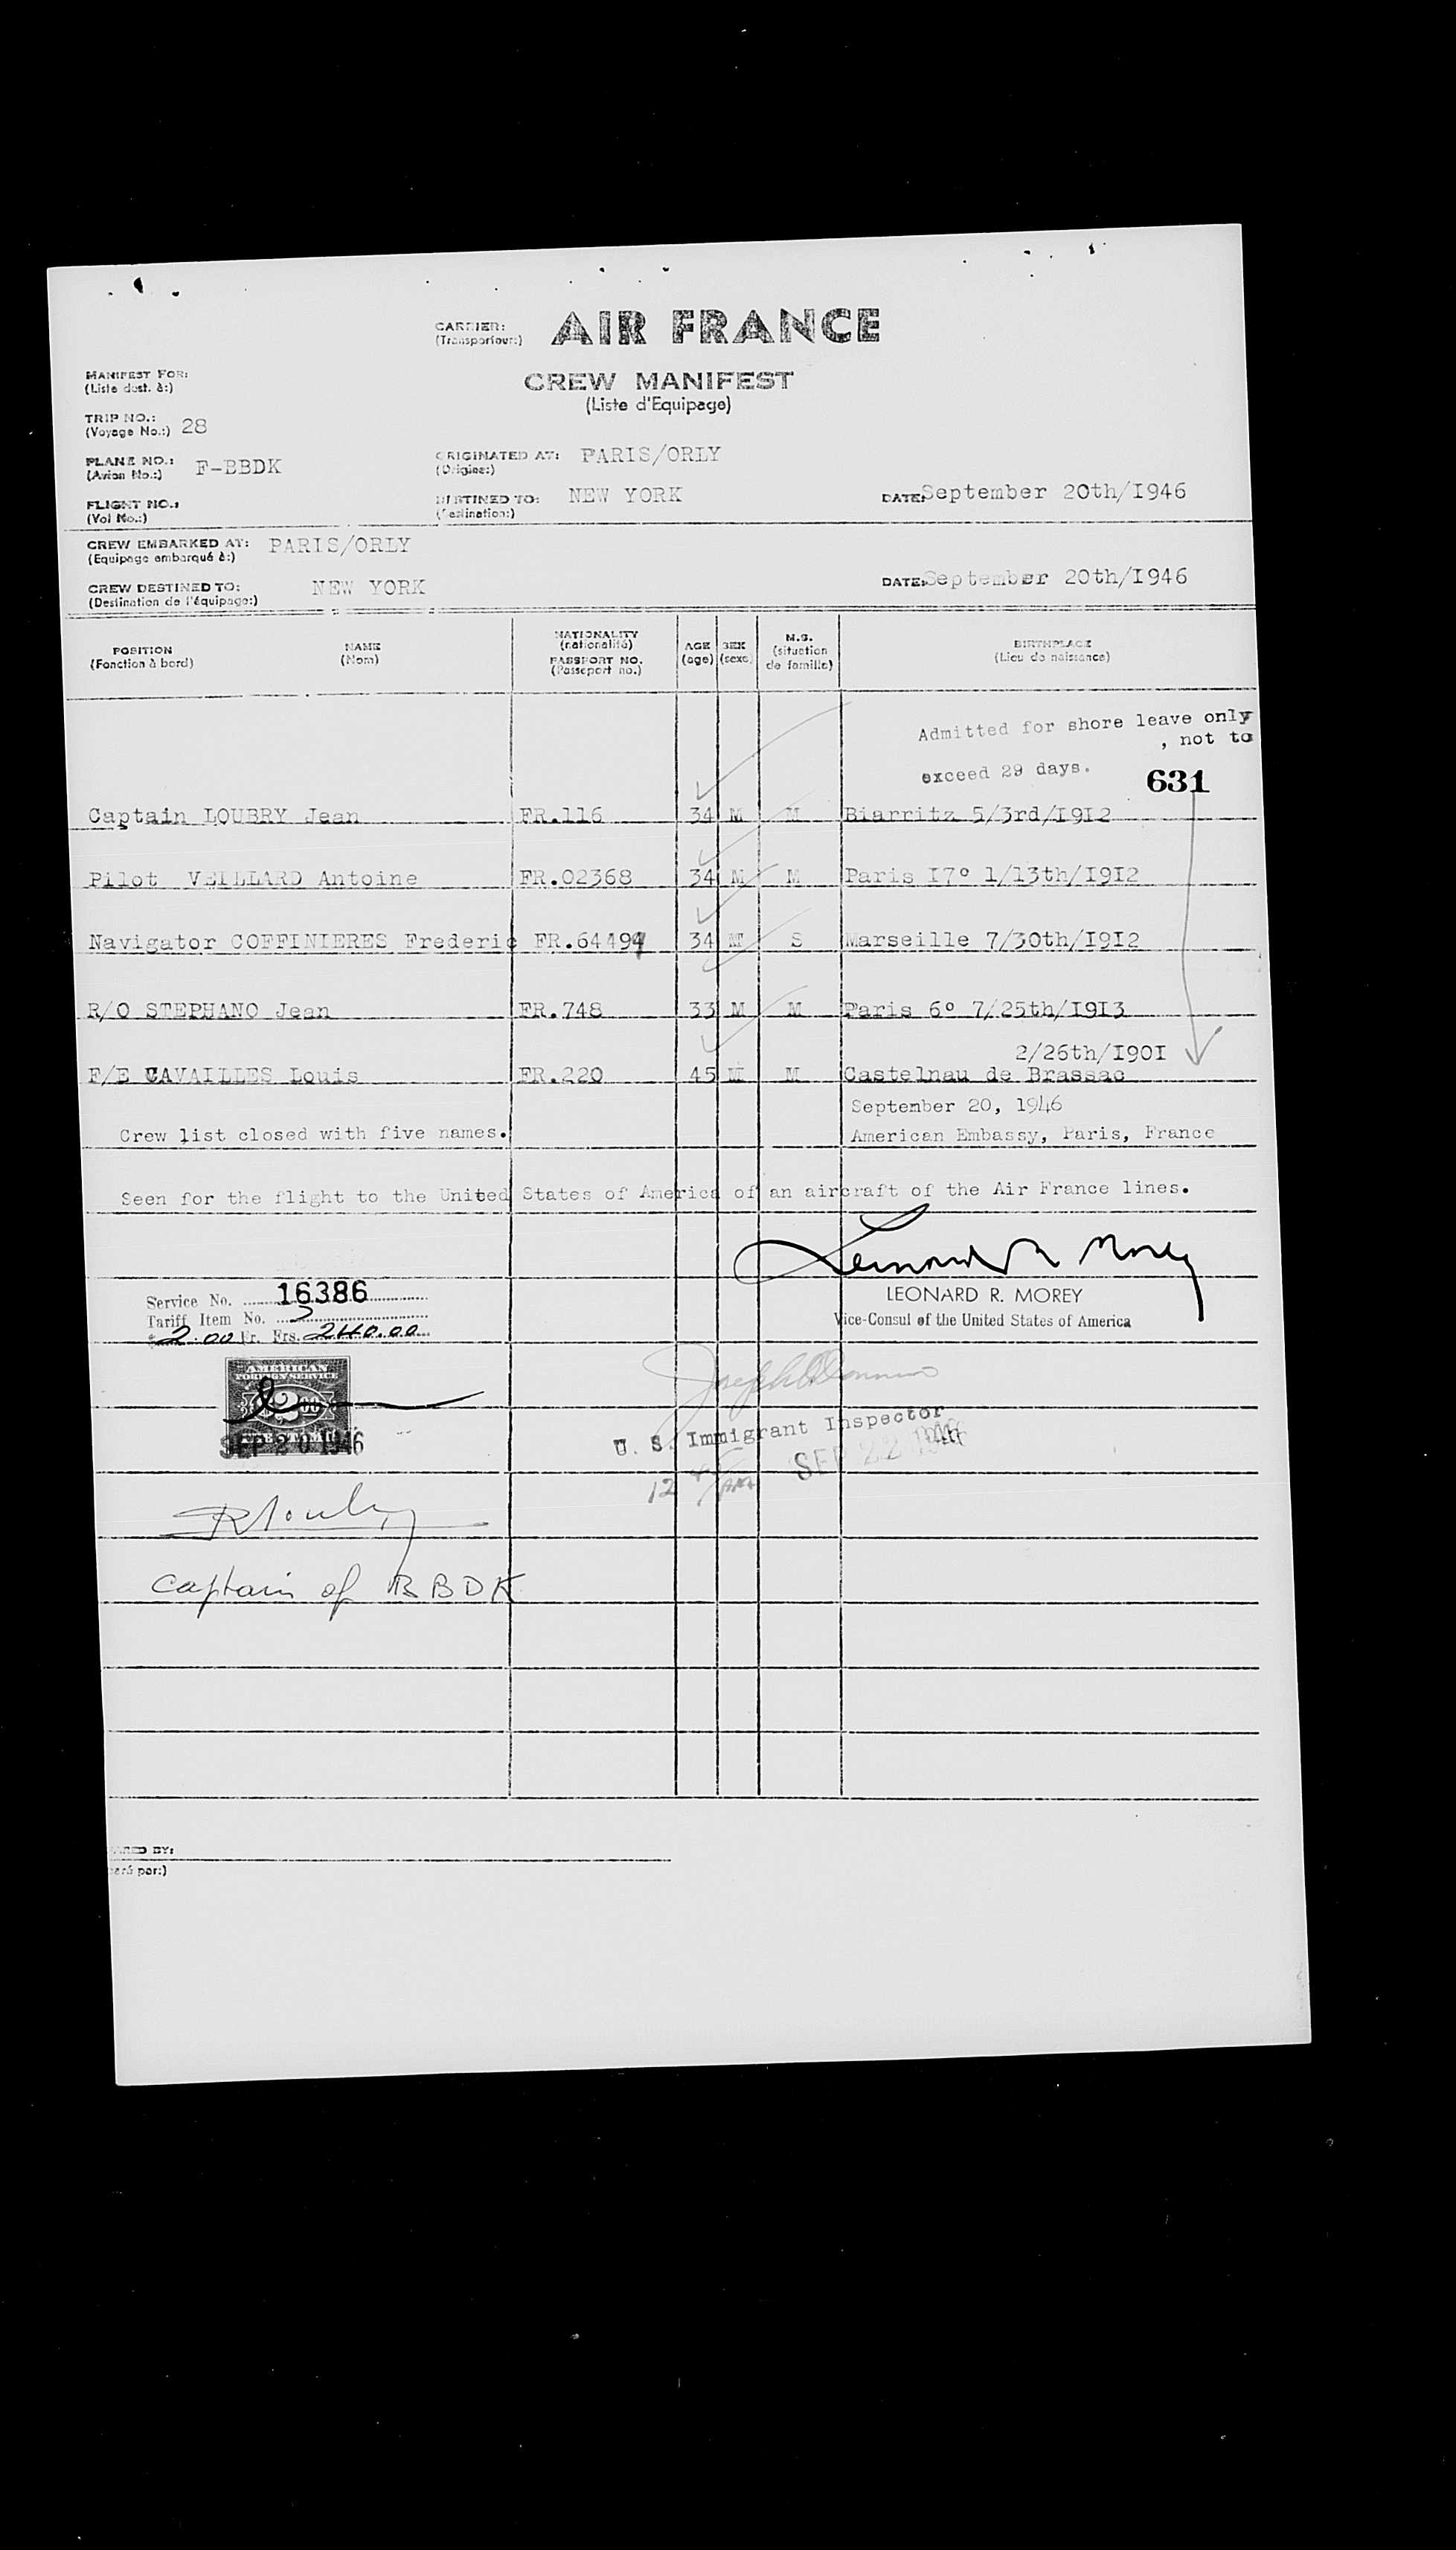 CARRIER: AIR FRANCE
(Transporteur:)
MANIFEST FOR:
(Liste dest. à:)
CREW MANIFEST
(Liste d'Equipage)
TRIP NO.: 28
(Voyage No.:)
PLANE NO.: F-BBDK
(Avion No.:)
ORIGINATED AT: PARIS/ORLY
(Origine:)
FLIGHT NO.:
(Vol No.:)
DESTINED TO: NEW YORK
(Destination:)
DATE: September 20th/I946
CREW EMBARKED AT: PARIS/ORLY
(Equipage embarqué à:)
CREW DESTINED TO: NEW YORK
(Destination de l'équipage:)
DATE: September 20th/I946
POSITION
(Fonction à bord)
NAME
(Nom)
NATIONALITY
(nationalité)
PASSPORT NO.
(Passeport no.)
AGE
(age)
SEX
(sexe)
M.S.
(situation
de famille)
BIRTHPLACE
(Lieu de naissance)
Admitted for shore leave only
, not to
exceed 29 days.
631
Captain LOUBRY Jean FR.116 34 M M Biarritz 5/3rd/I9I2
Pilot VEILLARD Antoine FR.02368 34 M M Paris I7° 1/13th/I9I2
Navigator COFFINIERES Frederic FR.64494 34 M S Marseille 7/30th/I9I2
R/O STEPHANO Jean FR.748 33 M M Paris 6° 7/25th/I9I3
2/26th/I90I
F/E CAVAILLES Louis FR.220 45 M M Castelnau de Brassac
September 20, 1946
Crew list closed with five names. American Embassy, Paris, France
Seen for the flight to the United States of America of an aircraft of the Air France lines.
Leonard R Morey
LEONARD R. MOREY
Vice-Consul of the United States of America
Service No. 16386
Tariff Item No.
$ 2.00 Fr. Frs. 240.00
AMERICAN
FOREIGN SERVICE
2 00
FEE STAMP
SEP 20 1946
U. S. Immigrant Inspector
SEP 22 1946
12 AM
Captain of BBDK